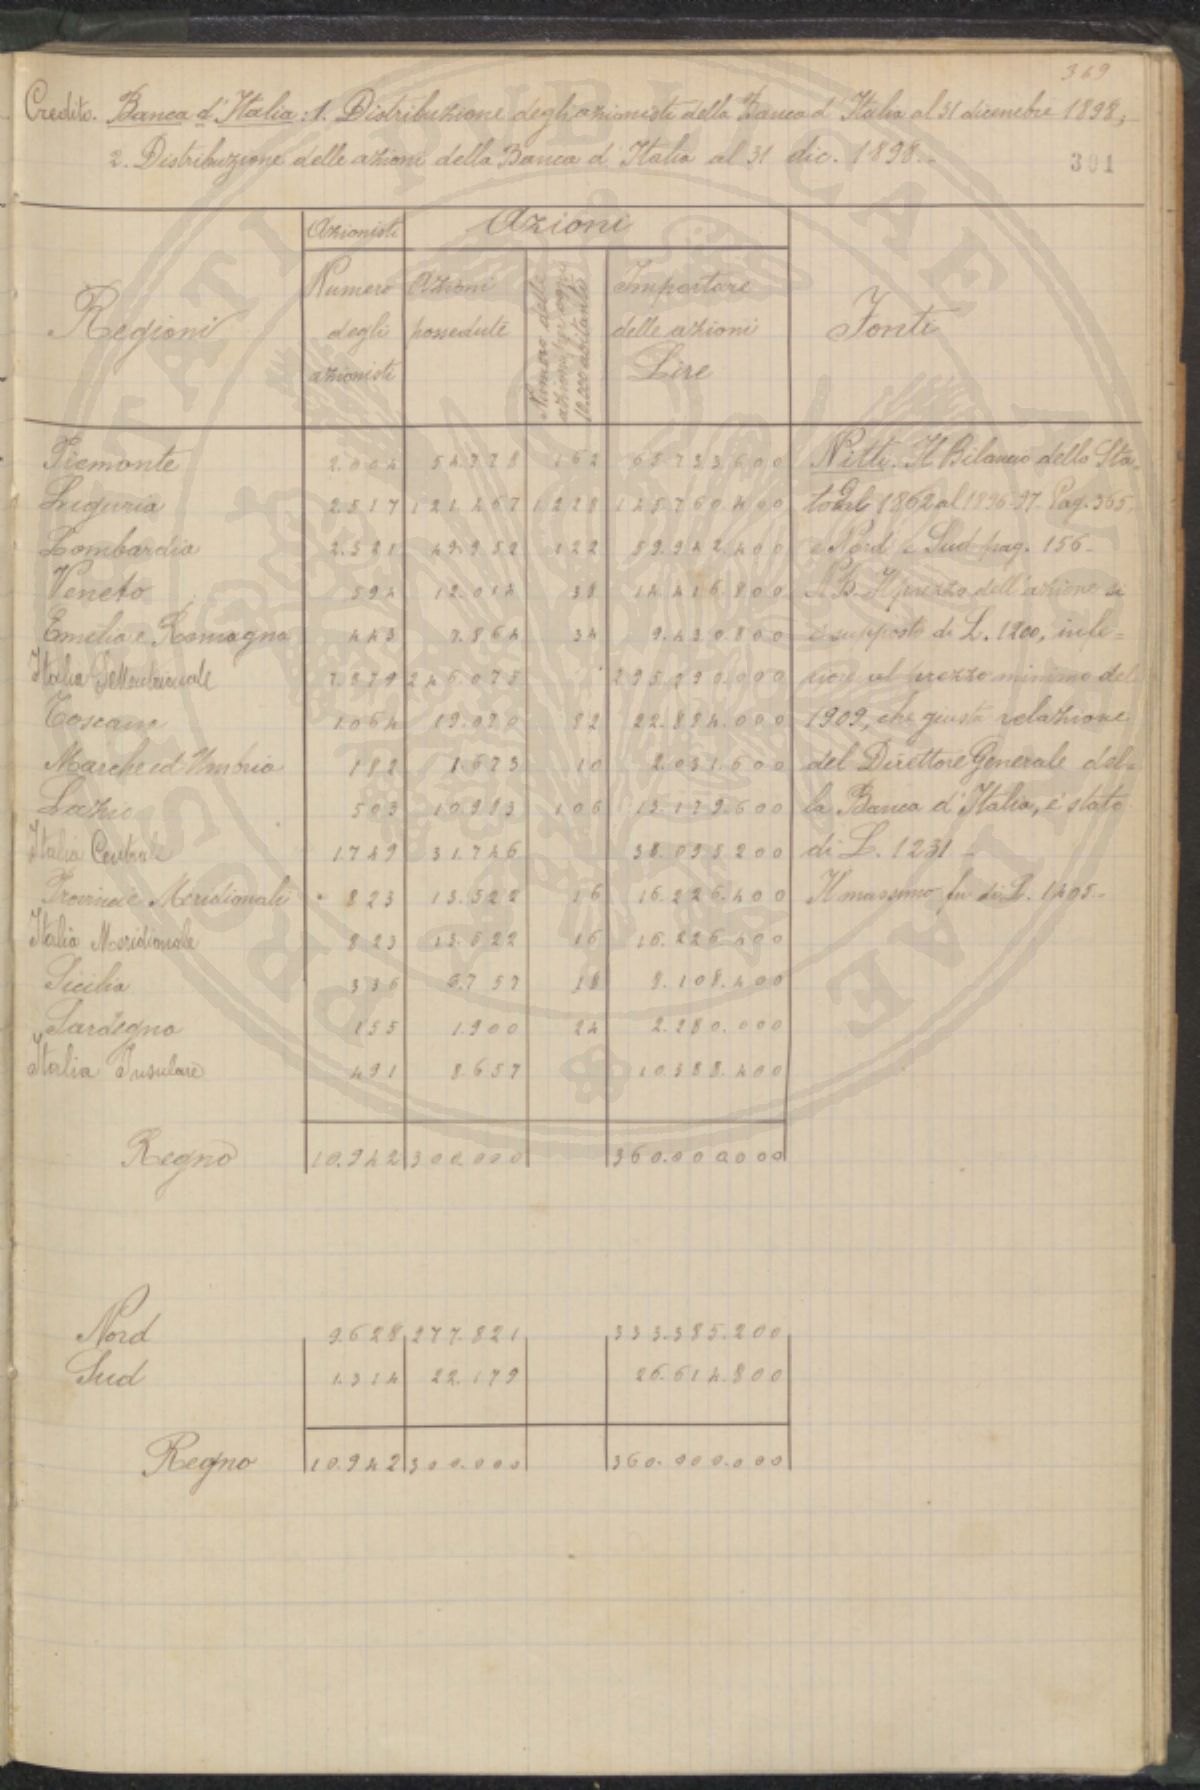 369
Credito. Banca d'Italia: 1. Distribuzione degli azionisti della Banca d'Italia al 31 dicembre 1898;
2. Distribuzione delle azioni della Banca d'Italia al 31 dic. 1898.-
391
Regioni
Azionisti
Azioni
Fonti
Numero degli azionisti
Azioni possedute
Numero delle azioni per ogni 10.000 abitanti
Importare delle azioni Lire
Piemonte 2.004 54.778 162 65.733.600
Liguria 2.517 121.467 1228 145.760.400
Lombardia 2.321 49.952 122 59.942.400
Veneto 594 12.014 38 14.416.800
Emilia e Romagna 443 7.864 34 9.436.800
Italia Settentrionale 7.879 246.075 295.290.000
Toscana 1.064 19.070 82 22.884.000
Marche ed Umbria 182 1.693 10 2.031.600
Lazio 503 10.983 106 13.179.600
Italia Centrale 1.749 31.746 38.095.200
Provincie Meridionali 823 13.522 16 16.226.400
Italia Meridionale 823 13.522 16 16.226.400
Sicilia 336 6.757 18 8.108.400
Sardegna 155 1.900 24 2.280.000
Italia Insulare 491 8.657 10.388.400
Regno 10.942 300.000 360.000.000
Nitti. Il Bilancio dello Sta-
to dal 1862 al 1896-97. Pag. 365.
e Nord e Sud pag. 156-
N.B. Il prezzo dell'azione si
è supposto di L. 1200, infe=
riore al prezzo minimo del
1909, che giusta relazione
del Direttore Generale del=
la Banca d'Italia, è stato
di L. 1231-
Il massimo fu di L. 1405-
Nord 9.628 277.821 333.385.200
Sud 1.314 22.179 26.614.800
Regno 10.942 300.000 360.000.000